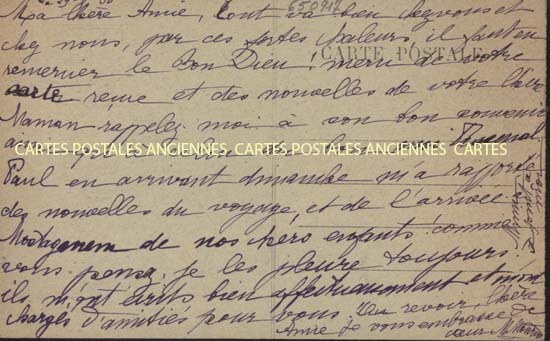 650917
Ma chère Amie, tout va bien chez vous et
chez nous, par ces fortes chaleurs, il faut en
remercier le Bon Dieu! merci de votre
CARTE POSTALE
carte reçue et des nouvelles de votre chère
Maman rappelez moi à son bon souvenir
CARTES POSTALES ANCIENNES CARTES POSTALES ANCIENNES CARTES
Paul en arrivant dimanche m'a rapporté
des nouvelles du voyage, et de l'arrivée
Mostaganem de nos chers enfants! comme
vous pensez, je les pleure toujours!
ils m'ont écrits bien affectueusement et m'ont
chargés d'amitiés pour vous. Au revoir chère
Amie je vous embrasse de
cœur